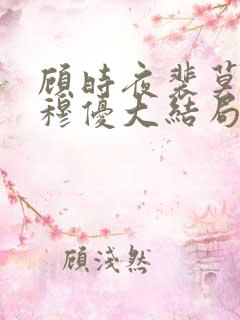 顾时夜裴莫
穆優大結局
顧淺然